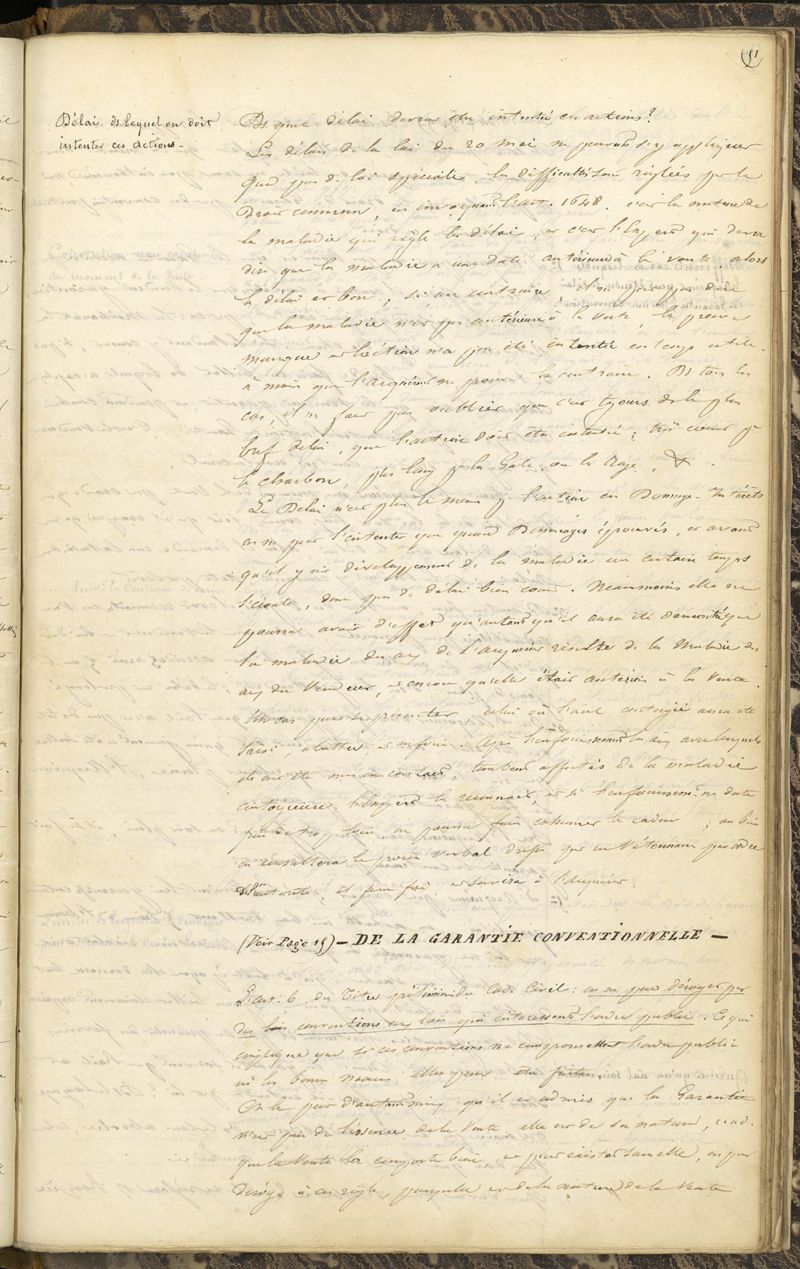 11
Délai ds lequel on doit
intenter ces actions.
Ds quel délai devra être intentée ces actions?
Les délais de la loi du 20 mai ne peuvent s'y appliquer
que pas de loi spéciale, les difficultés sont réglées pr le
Droit commun, en invoquant l'art. 1648. c'est la nature de
la maladie qui règle le délai, et c'est l'Expert qui devra
dire que la maladie a une date antérieure à la vente. alors
le délai est bon; si au contraire il ne peut pas dire
que la maladie n'est pas antérieure à la vente, la preuve
manque et l'action n'a pas été intentée en temps utile
à moins que l'acquéreur ne prouve le contraire. Ds tous les
cas, il ne faut pas oublier que c'est tjours ds le plus
bref délai, que l'action doit être intentée; très court pr
le charbon, plus long pr la Gale, ou la Rage, &
Le Délai n'est plus le même pr l'action en Dommage-Intérêts
on ne peut l'intenter que quand Dommages éprouvés, et avant
qu'il y ait développement de la maladie un certain temps
s'écoule, donc pas de délai bien court. Néanmoins elle ne
pourra avoir d'effet qu'autant qu'il aura été démontré que
la maladie des aux de l'acquéreur résulte de la Maladie des
aux du Vendeur, et encore qu'elle était antérieure à la Vente.
un cas peut se présenter celui où l'aal contagié aura été
saisi, abattu et enfoui. Après l'enfouissement les aux avec lesquels
ils ont été mis en contact, tombent affectés de la maladie
contagieuse, l'Expert la reconnait, et si l'enfouissemt ne date
pas de trop loin on pourra faire exhumer le cadavre; ou bien
on consultera le procès verbal dressé par un Vétérinaire par ordre
de l'autorité, et fera foi et servira à l'acquéreur.
(Voir Page 15) — DE LA GARANTIE CONVENTIONNELLE —
L'art. 6 du Titre préliminaire du Code Civil: on ne peut déroger par
des conventions aux lois qui intéressent l'ordre public. Ce qui
implique que si ces conventions ne compromettent l'ordre public
ni les bonnes mœurs, elles peuvent être faites.
On le peut d'autant mieux qu'il est admis que la Garantie
n'est pas de l'essence de la Vente, elle est de sa nature, c.a.d.
que la Vente la comporte bien, et peut exister sans elle, on peut
déroger à ces règles, puisqu'elle est de la nature de la Vente